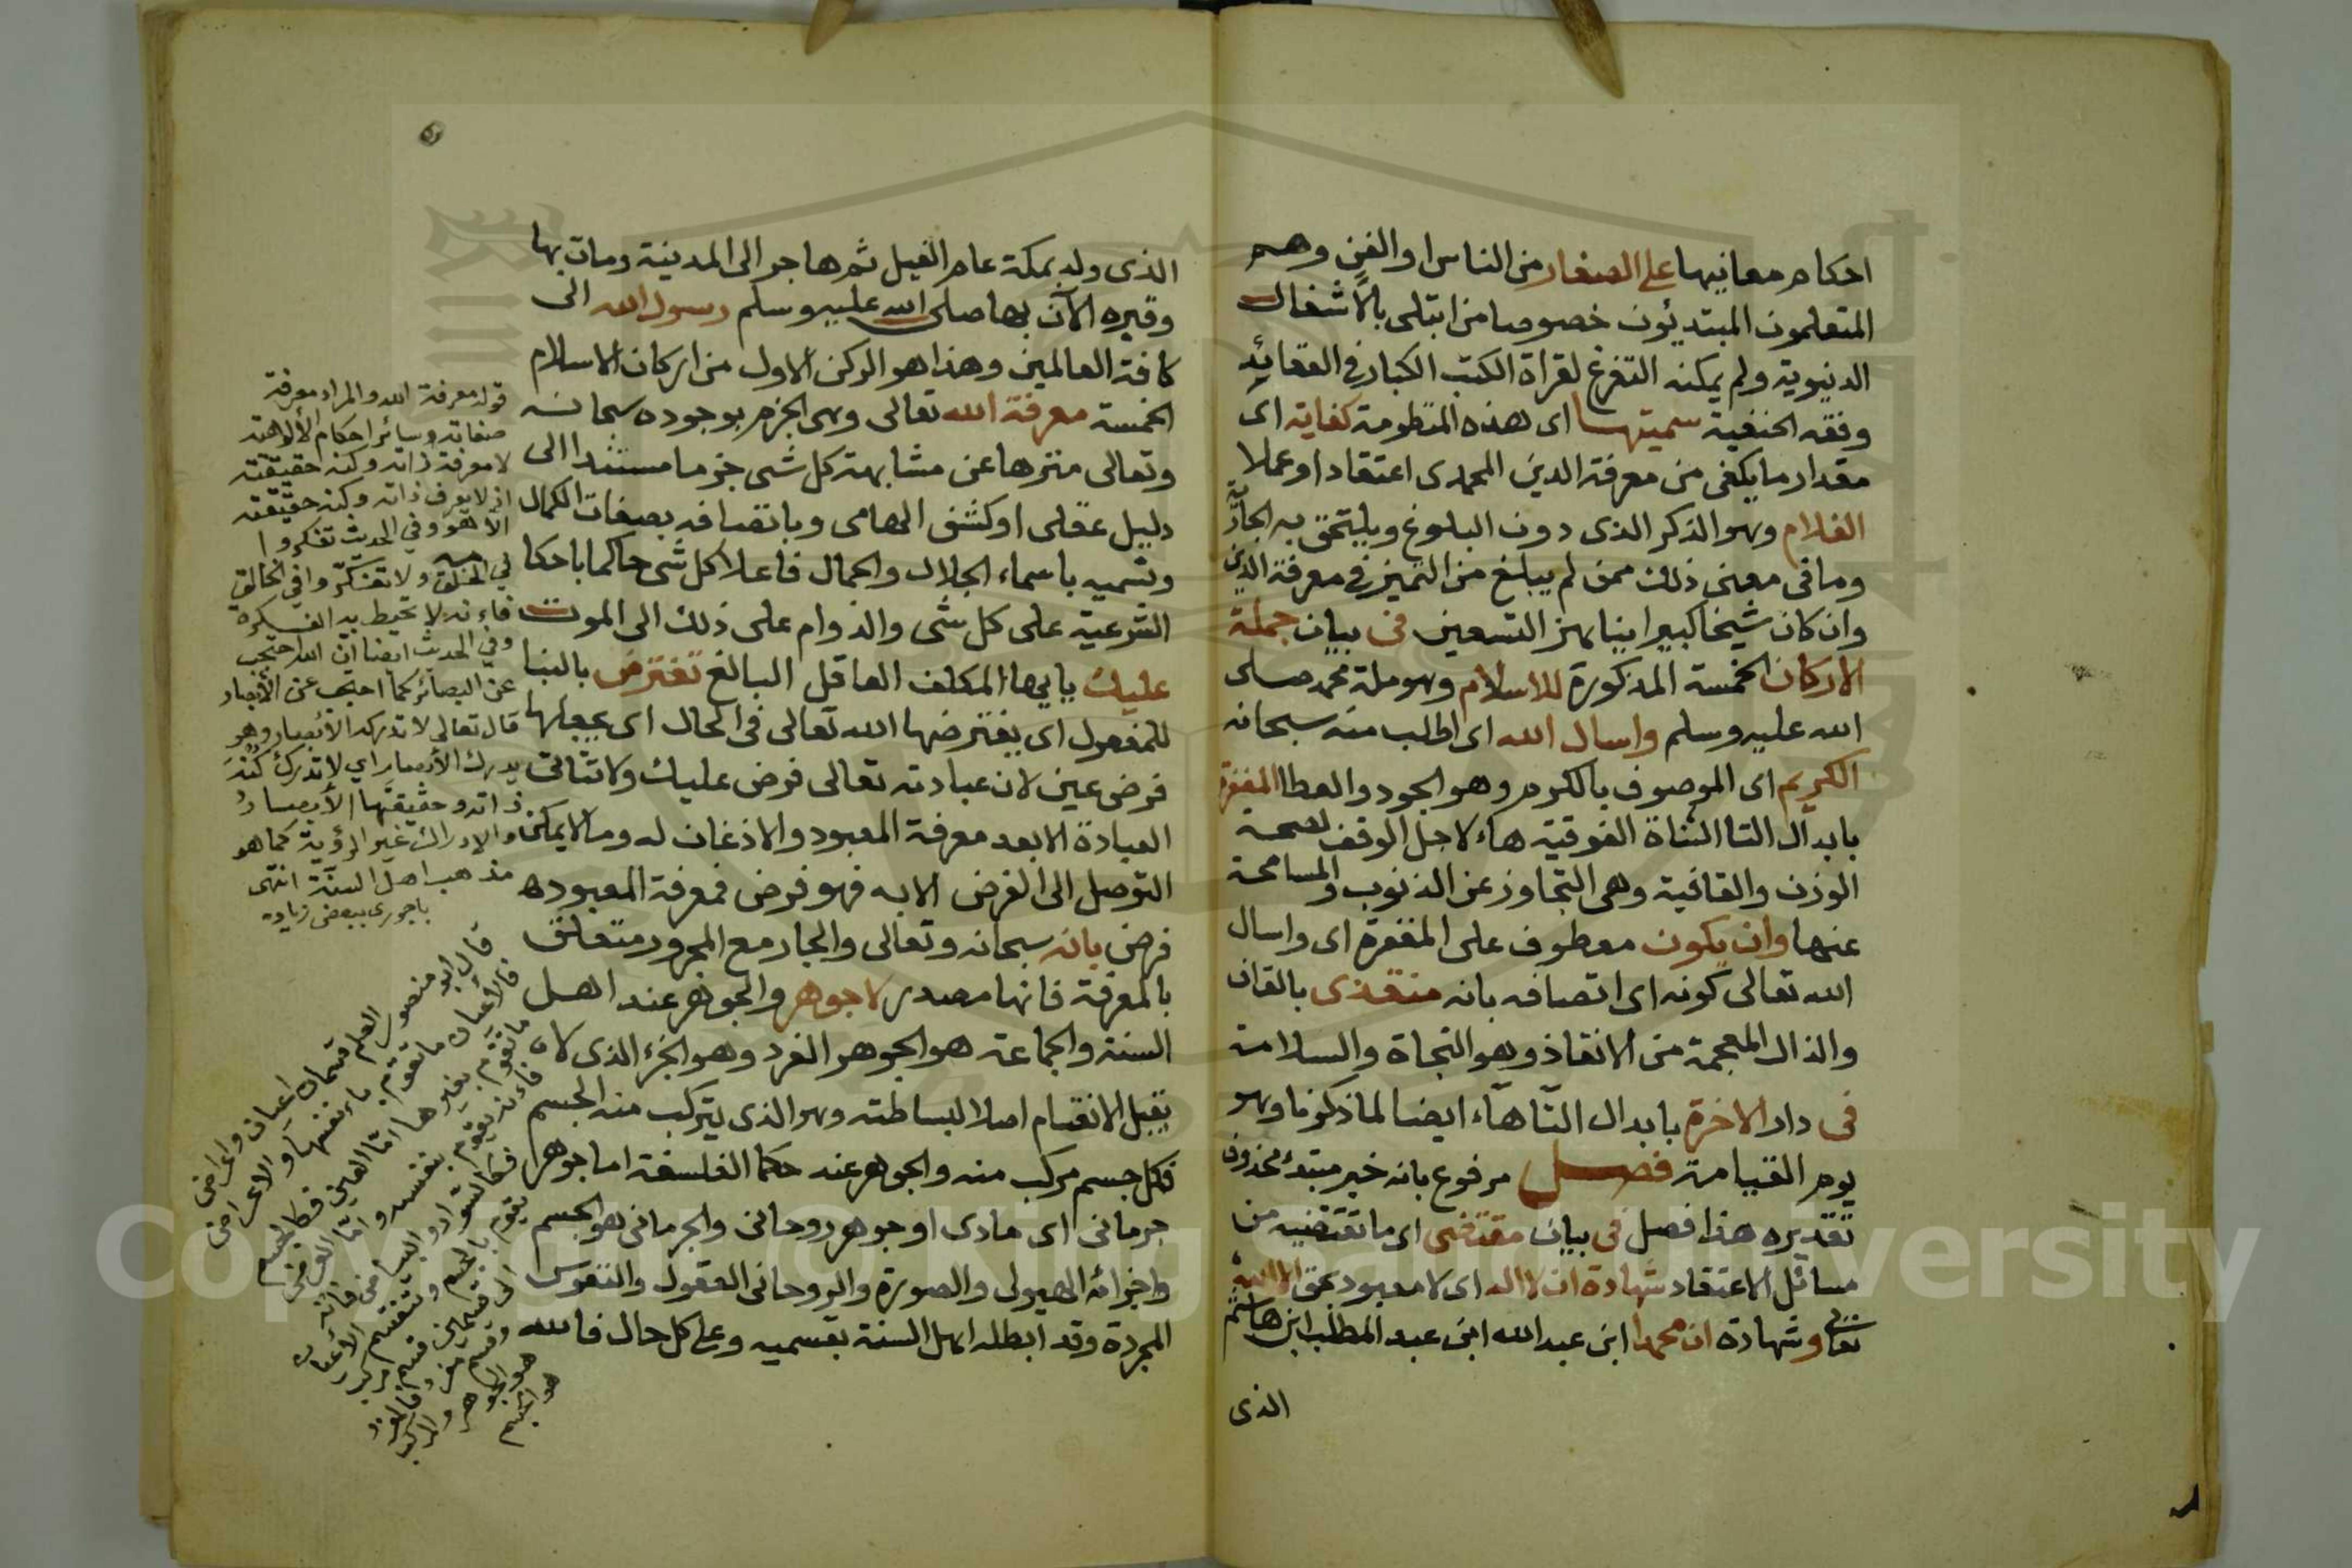 احكام معانيها على الصغار من الناس او الفن وهم
المتعلمون المبتدئون خصوصا من ابتلى بالاشغال
الدنيوية ولم يمكنه التفرغ لقراة الكتب الكبار في العقائد
وفقه الحنفية سميتها اى هذه المنظومة كفاية اى
مقدار ما يكفى من معرفة الدين المحمدى اعتقادا وعملا
الغلام وهو الذكر الذى دون البلوغ ويلتحق به الجارية
وما فى معنى ذلك ممن لم يبلغ من التميز في معرفة الدين
وان كان شيخا كبيرا يناهز التسعين فى بيان جملة
الاركان الخمسة المذكورة للاسلام وهو ملة محمد صلى
الله عليه وسلم واسال الله اى اطلب منه سبحانه
الكريم اى الموصوف بالكرم وهو الجود والعطا المغفرة
بابدال التا المثناة الفوقية هاء لاجل الوقف لصحة
الوزن والقافية وهى التجاوز عن الذنوب والمسامحة
عنها وان يكون معطوف على المغفرة اى واسال
الله تعالى كونه اى اتصافه بانه منقذى بالقاف
والذال المعجمة من الانقاذ وهو النجاة والسلامة
فى دار الاخرة بابدال التا هاء ايضا لما ذكرنا وهو
يوم القيامة فصل مرفوع بانه خبر مبتدء محذوف
تقديره هذا فصل فى بيان مقتضى اى ما تقتضيه من
مسائل الاعتقاد شهادة ان لا اله اى لا معبود بحق الا الله
تعالى وشهادة ان محمدا ابن عبد الله ابن عبد المطلب ابن هاشم
الذى
الذى ولد بمكة عام الفيل ثم هاجر الى المدينة ومات بها
وقبره الآن بها صلى الله عليه وسلم رسول الله الى
كافة العالمين وهذا هو الركن الاول من اركان الاسلام
الخمسة معرفة الله تعالى وهى الجزم بوجوده سبحانه
وتعالى منزها عن مشابهة كل شى جزما مستندا الى
دليل عقلى او كشف الهامى وباتصافه بصفات الكمال
وتسميه باسماء الجلال والجمال فاعلا كل شى حاكما باحكامه
الشرعية على كل شى والدوام على ذلك الى الموت
عليك يا ايها المكلف العاقل البالغ تفترض بالبنا
للمفعول اى يفترضها الله تعالى فى الحال اى يجعلها
فرض عين لان عبادته تعالى فرض عليك ولا تتاتى
العبادة الا بعد معرفة المعبود والاذعان له وما لا يمكن
التوصل الى الفرض الا به فهو فرض فمعرفة المعبود ه
فرض بانه سبحانه وتعالى والجار مع المجرور متعلق
بالمعرفة فانها مصدر لا جوهر والجوهر عند اهل
السنة والجماعة هو الجوهر الفرد وهو الجزء الذى لا
يقبل الانقسام اصلا لبساطته وهو الذى يتركب منه الجسم
فكل جسم مركب منه والجوهر عند حكما الفلسفة اما جوهر
جرمانى اى مادى او جوهر روحانى والجرمانى هو الجسم
واجزائه الهيولى والصورة والروحانى العقول والنفوس
المجردة وقد ابطله اهل السنة بقسميه وعلى كل حال فالله
قوله معرفة الله والمراد معرفة
صفاته وسائر احكام الألوهية
لا معرفة ذاته وكنه حقيقته
اذ لا يعرف ذاته وكنه حقيقته
الا هو وفي الحديث تفكروا
في الخلق ولا تتفكروا في الخالق
فإنه لا تحيط به الفكرة
وفي الحديث ايضا ان الله احتجب
عن البصائر كما احتجب عن الأبصار
قال تعالى لا تدركه الأبصار وهو
يدرك الأبصار اي لا تدرك كنه
ذاته وحقيقتها الأبصار
والإدراك غير الرؤية كما هو
مذهب اهل السنة انتهى
باجورى ببعض زيادة
قال ابو منصور العلم قسمان اعيان واعراض
فالأعيان ما تقوم بأنفسها والاعراض
ما تقوم بغيرها اما العين فكالجسم
فإنه يقوم بنفسه واما العرض
فكالسواد والبياض فانه
يقوم بالجسم وتنقسم الأعيان
الى قسمين قسم مركب
وقسم مفرد فالمفرد
هو الجوهر والمركب
هو الجسم
Copyright © King Saud University